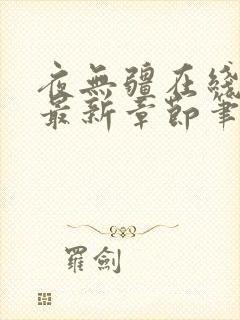 夜無疆在綫
最新章節筆
羅劍